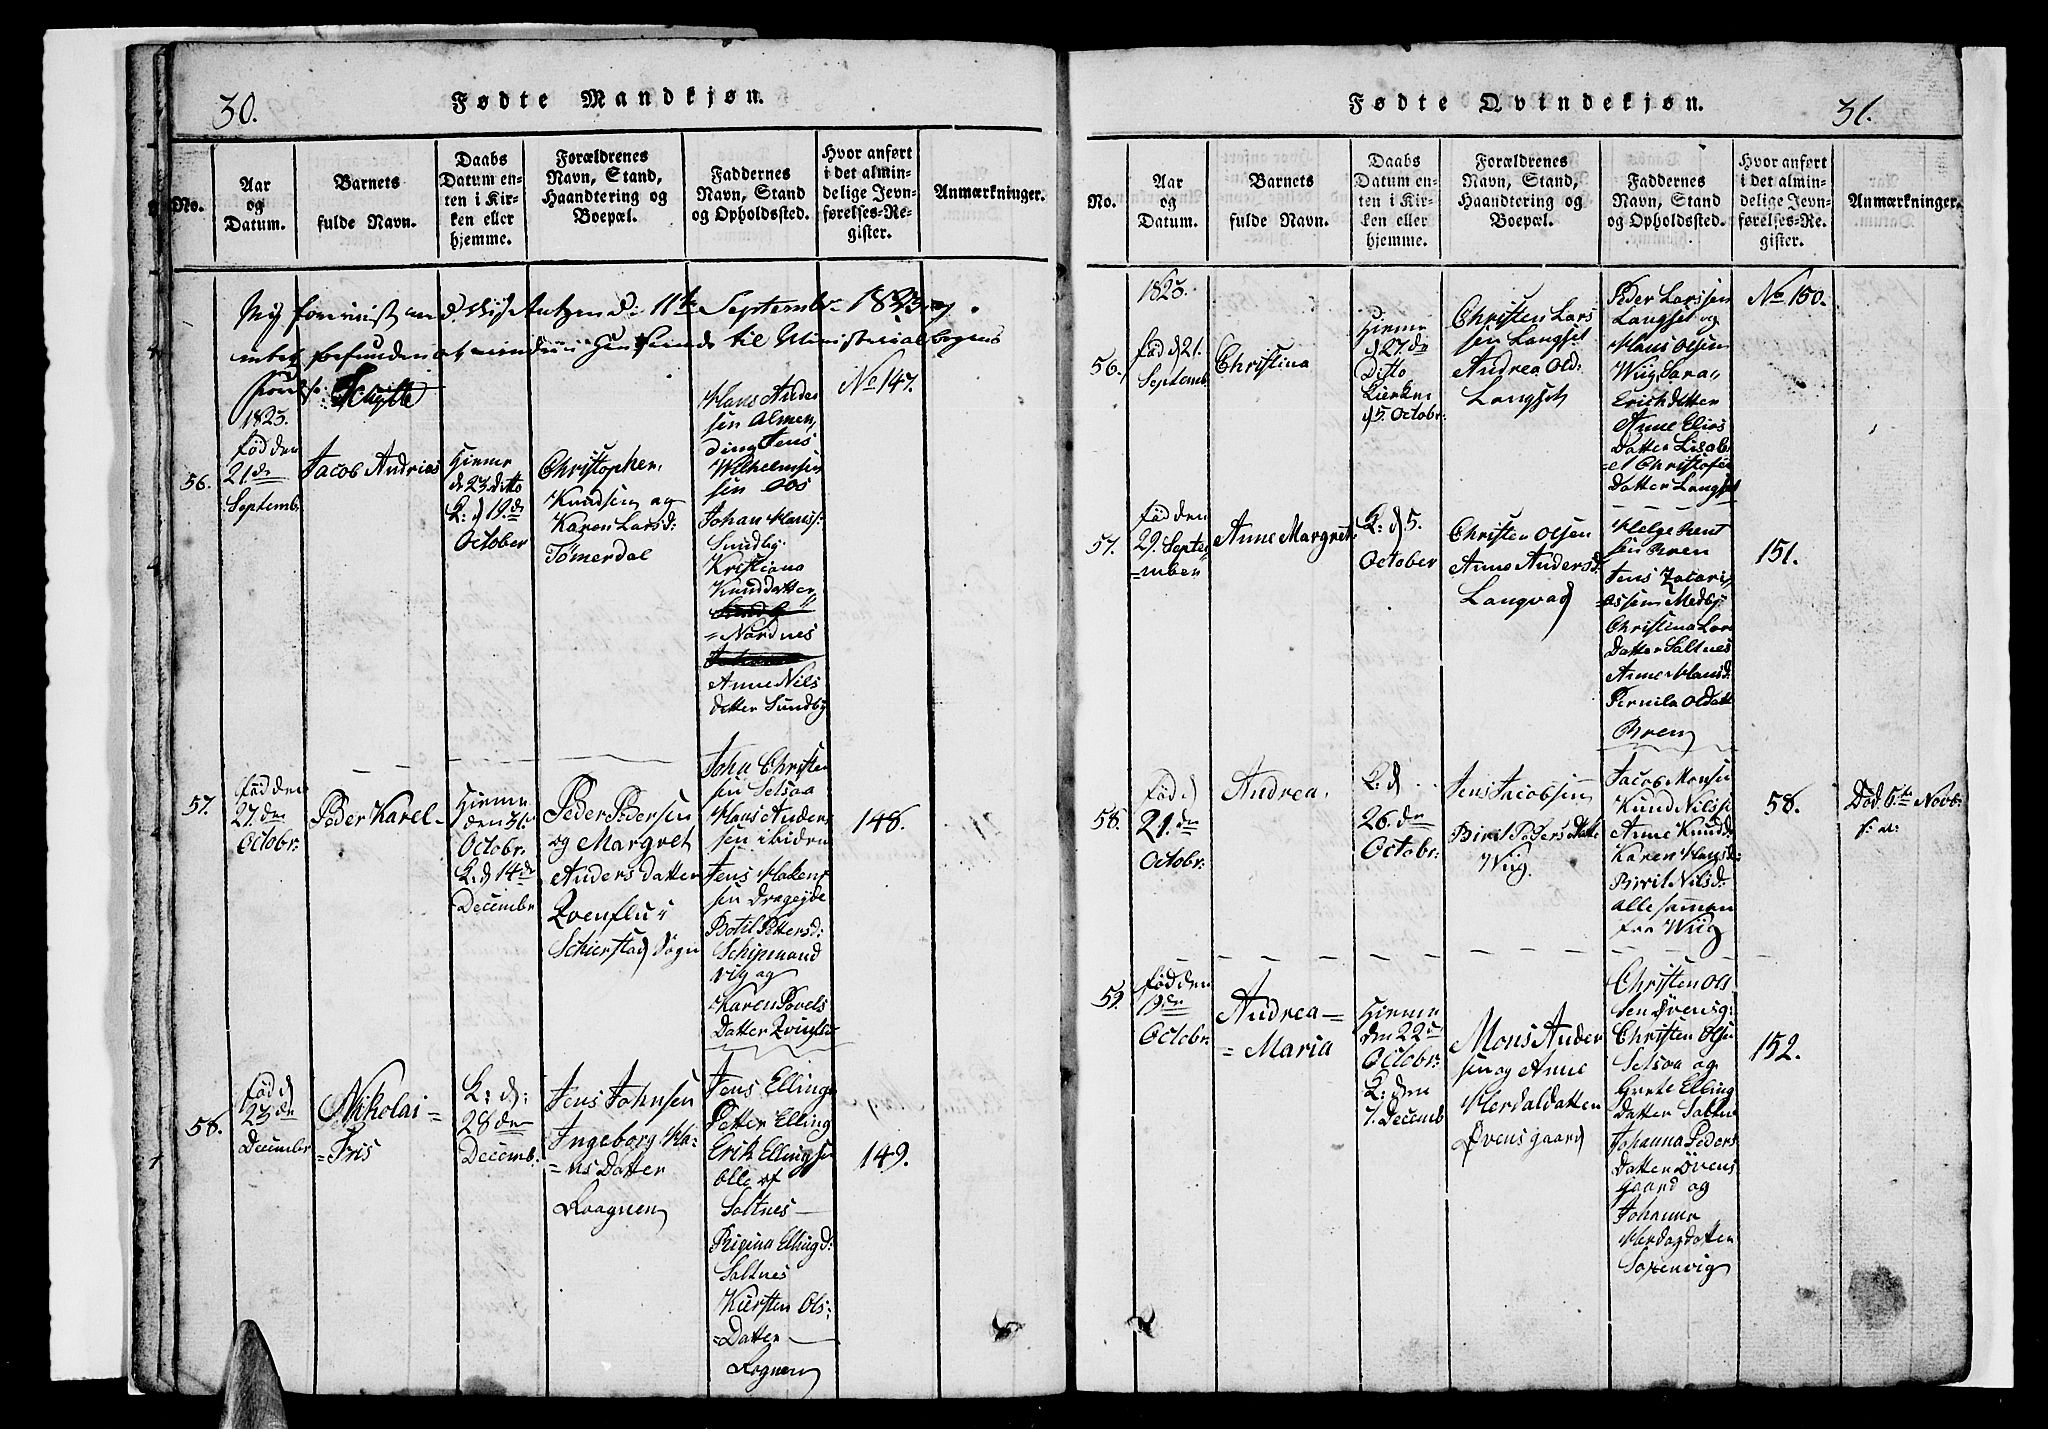 30.
Fødte Mandkjøn.
No.
Aar
og
Datum.
Barnets
fulde Navn.
Daabs
Datum en-
ten i Kir-
ken eller
hjemme.
Forældrenes
Navn, Stand,
Haandtering og
Boepæl.
Faddernes
Navn, Stand
og Opholdssted.
Hvor anført
i det almin-
delige Jevn-
førelses-Re-
gister.
Anmærkninger.
11te September 1823
til Ministerialbogens
1823.
56.
fød den
21de
Septemb:
Jacob Andrias
Hiemme
d 23 ditto
K: d 19de
October
Christopher
Knudsen og
Karen Larsd:
Tømerdal
Hans Ander
sen Almen
ding Jens
Wilhelmsen
sen Øos
Johan Hans:
Sundby
Kristiana
Knuddatter
=Nordnes
Anne Nils
datter Sundby
No 147.
57.
fød den
27den
Octobr:
Peder Karel
Hiemme
den 31
Octobr:
K: d 14de
Decembr
Peder Pedersen
og Margret
Anders datter
Schierstad Sogn
John Christen
sen Setsaa
Hans Anders
sen ibidem
Jens Haken
sen Dragejde
Botil Pettersd:
Schipmand
vig og
Karen Povels
Datter
148.
58.
fød d
23de
Decembr
Nikolai=
=Fris
K: d:
28de
Decemb:
Jens Johnsen
Ingeborg Ha=
=ns Datter
Roagnen
Jens Elling
Petter Elling
Erik Ellingsen
alle af
Saltnes
Regina Ellingd:
Saltnes
Kiersten Ols=
=Datter
Rognen
149.
Fødte Qvindekjøn.
31.
No.
Aar
og
Datum.
Barnets
fulde Navn.
Daabs
Datum en-
ten i Kir-
ken eller
hjemme.
Forældrenes
Navn, Stand,
Haandtering og
Boepæl.
Faddernes
Navn, Stand
og Opholdssted.
Hvor anført
i det almin-
delige Jevn-
førelses-Re-
gister.
Anmærkninger.
1823.
56.
fød d 21.
Septemb
Christina
Hiemme
d 27de
Ditto
Kierken
d 5. Octobr:
Christen Lars
sen Langset
Andrea Old:
Langset
Peder Larssen
Langset og
Hans Olsen
Wiig, Sara
Erichdatter
Anne Elias
Datter Lisabe
=et Christofer
Datter Langset
No 150.
57.
fød den
29. Septe
=mber
Anne Margret
K: d 5.
October
Christen Olsen
Anne Andersd:
Langvad
Helge Bent
sen Bren
Jens Zacari
=assen Medby
Christina Lars
Datter Saltnes
Anne Hansd:
Pernila Oldatt
Bren
151.
58.
fød d
21.de
Octobr:
Andrea
K: d
26.de
Octobr:
Jens Jacobsen
Birit Peders Datt
Wiig.
Jacob Monsen
Knud Nilss
Anne Knudd:
Karen Hansd:
Birrit Nilsd:
alle sammen
fra Wiig
58.
Død 6te Novb:
59.
fød den
19de
Octobr:
Andrea=
=Maria
Hiemme
den 22de
Octobr:
K: den
7. Decemb
Mons Ander
sen og Anne
Herdaldatter
Øvensgaard
Christen Ols
sen Øvensg:
Christen Olsen
Setsaa og
Grete Elling
Datter Saltn
Johanna Peders
Datter Øvens
gaard og
Johanna
Herdagdatter
Saxenvig
152.